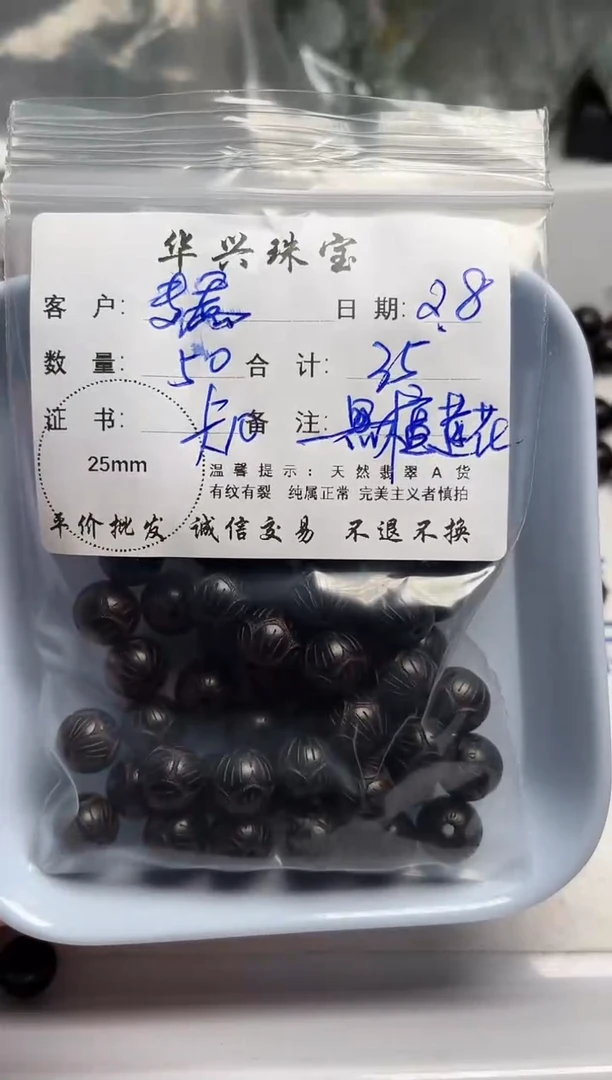 华兴珠宝
客 户: 日 期: 2.8
数 量: 50 合 计: 35
证 书: 卡10 备 注: 黑檀莲花
25mm
温馨提示: 天然翡翠A货
有纹有裂 纯属正常 完美主义者慎拍
平价批发 诚信交易 不退不换